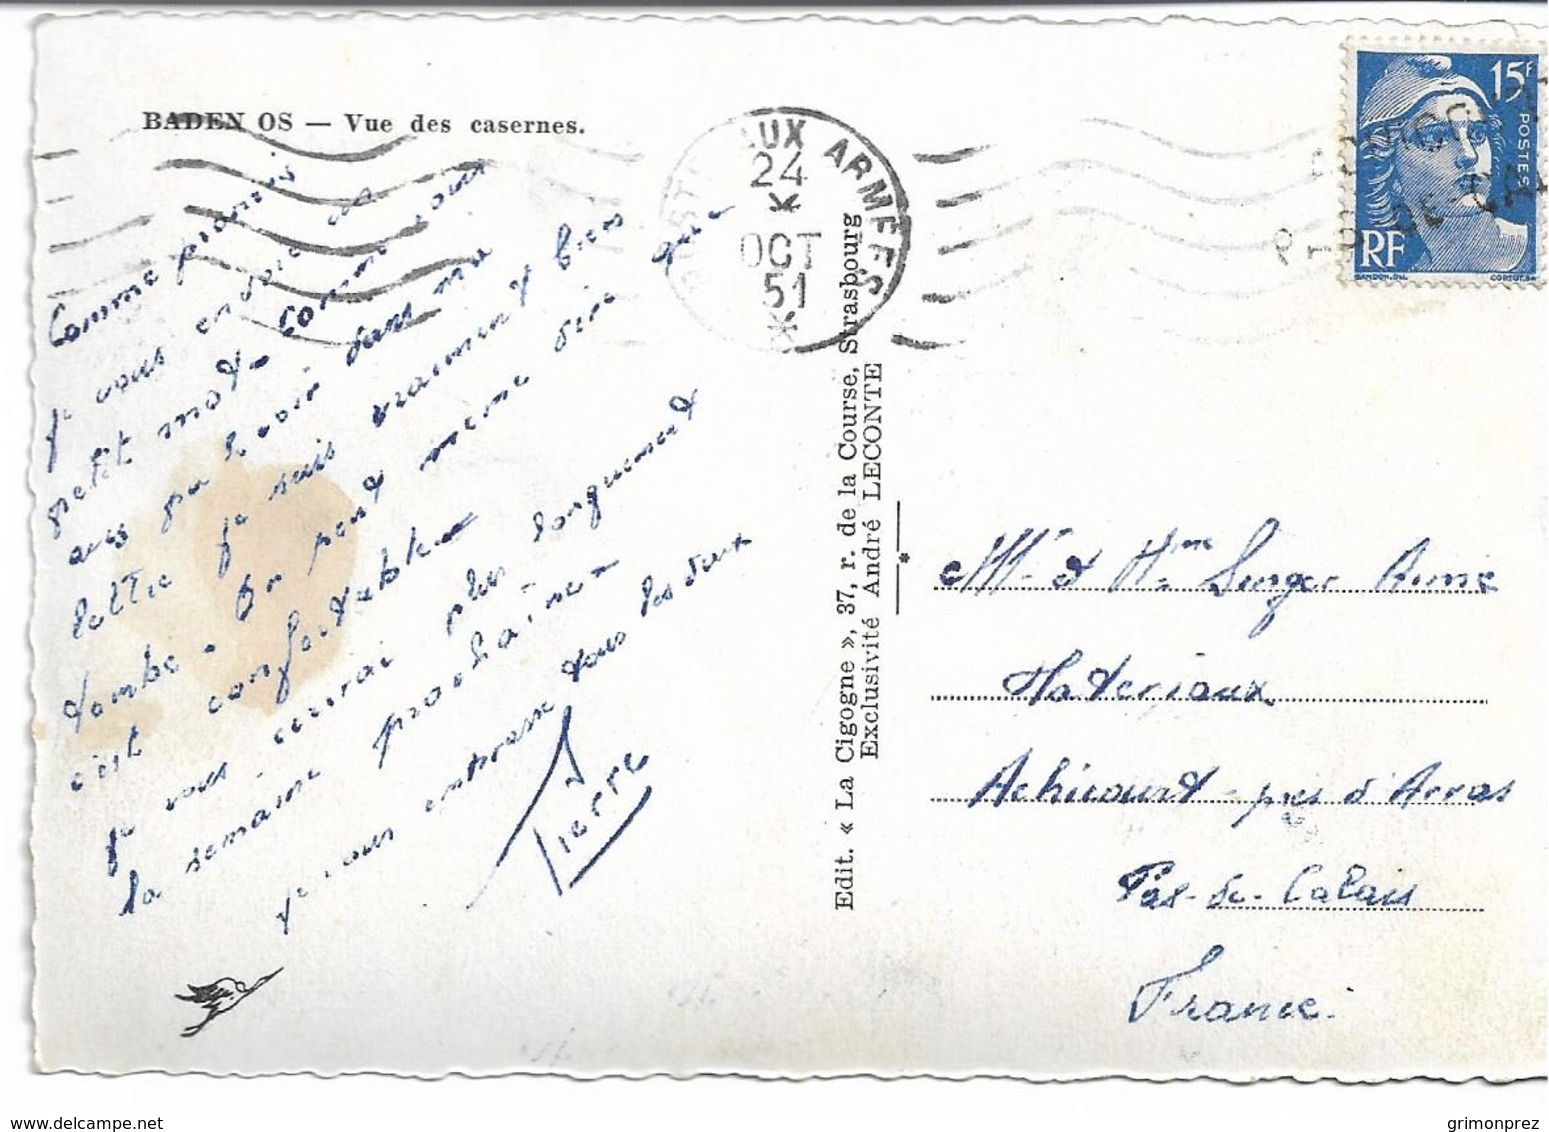 BADEN OS — Vue des casernes.
Comme promis
je vous envoie un
petit mot. Comme vous
avez pu le voir dans ma
lettre je suis vraiment bien
tombé. On peut même dire que
c'est confortable
je vous écrirai plus longuement
la semaine prochaine
je vous embrasse tous les deux
Pierre
AUX ARMEES
24
OCT
51
Edit. « La Cigogne », 37, r. de la Course, Strasbourg
Exclusivité André LECONTE
15F
POSTES
RF
GANDON.DEL
CORTOT.SC
Mr et Mme
Materiaux
Achicourt - près d'Arras
Pas-de-Calais
France.
delcampe.net
grimonprez